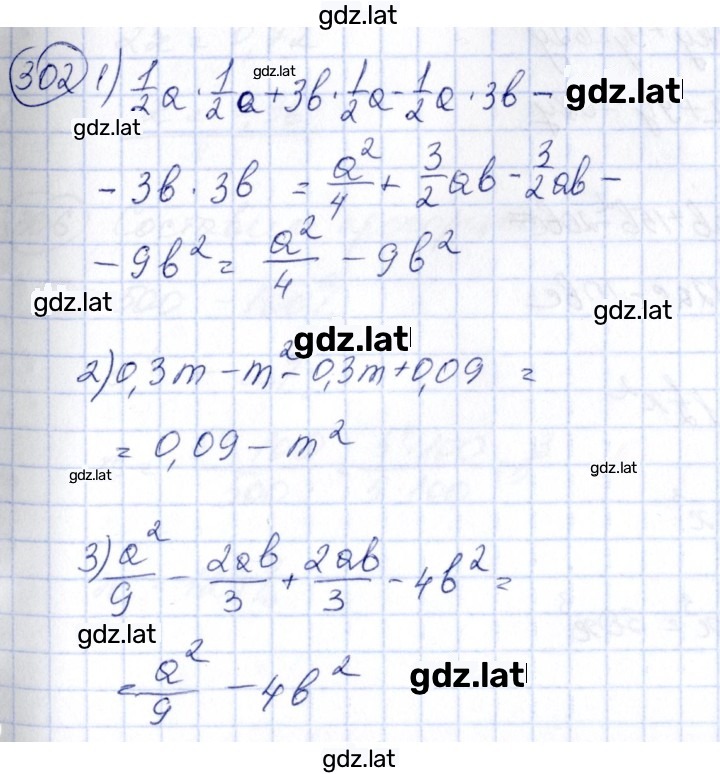 gdz.lat
302 1) 1/2 a · 1/2 a + 3b · 1/2 a - 1/2 a · 3b -
gdz.lat
gdz.lat
gdz.lat
- 3b · 3b = a²/4 + 3/2 ab - 3/2 ab -
- 9b² = a²/4 - 9b²
gdz.lat
gdz.lat
gdz.lat
2) 0,3m - m² - 0,3m + 0,09 =
= 0,09 - m²
gdz.lat
gdz.lat
3) a²/9 - 2ab/3 + 2ab/3 - 4b² =
gdz.lat
= a²/9 - 4b²
gdz.lat
gdz.lat